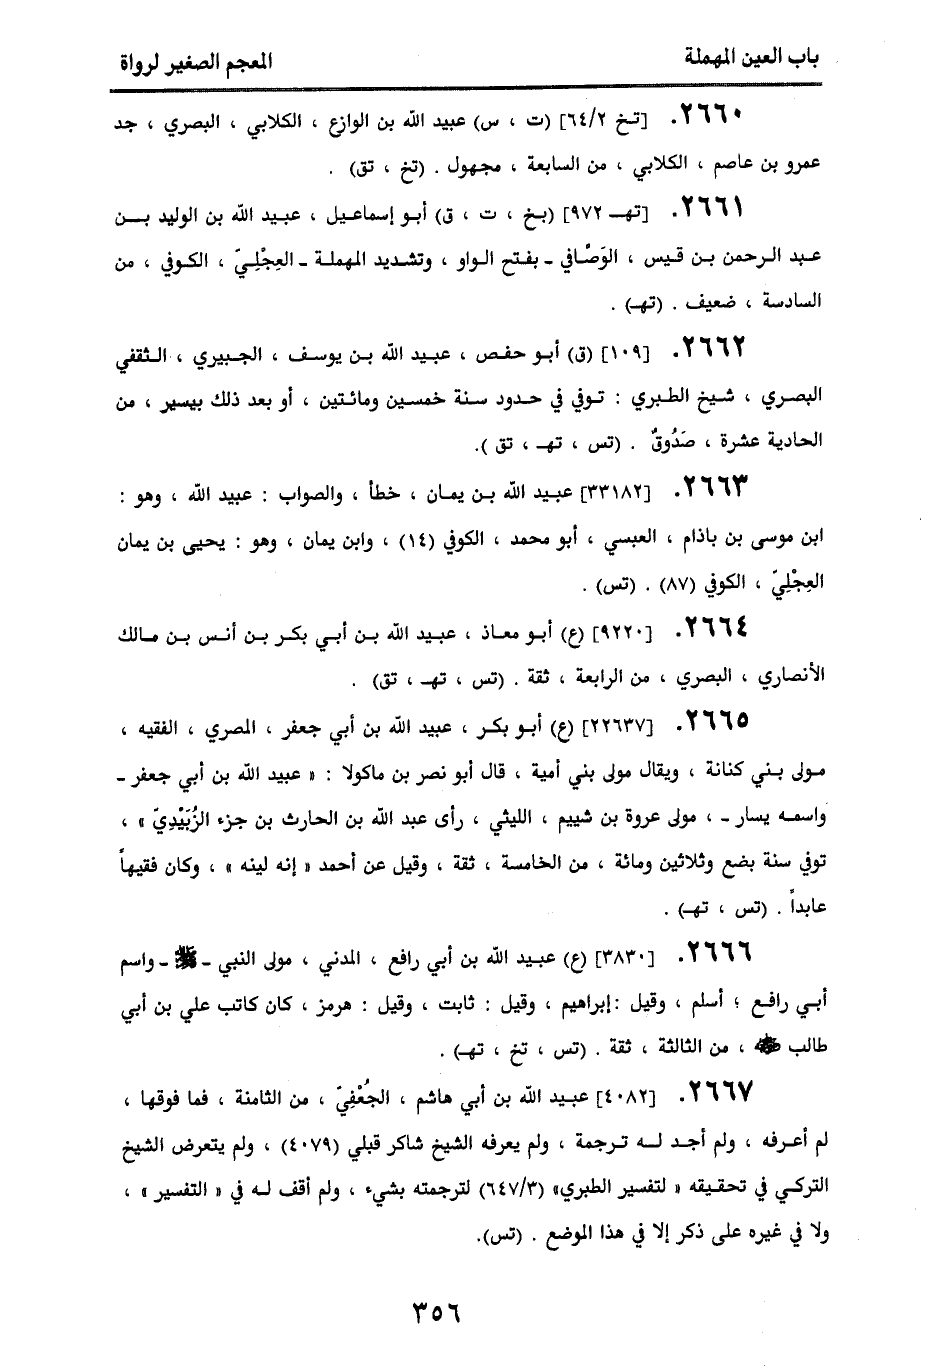 باب العين المهملة
المعجم الصغير لرواة
٢٦٦٠. [تخ ٦٤/٢] (ت ، س) عبيد الله بن الوازع ، الكلابي ، البصري ، جد
عمرو بن عاصم ، الكلابي ، من السابعة ، مجهول . (تخ ، تق) .
٢٦٦١. [تهـ ٩٧٢] (بخ ، ت ، ق) أبو إسماعيل ، عبيد الله بن الوليد بن
عبد الرحمن بن قيس ، الوَصَّافي ـ بفتح الواو ، وتشديد المهملة ـ العِجْلِيّ ، الكوفي ، من
السادسة ، ضعيف . (تهـ) .
٢٦٦٢. [١٠٩] (ق) أبو حفص ، عبيد الله بن يوسف ، الجبيري ، الثقفي
البصري ، شيخ الطبري : توفي في حدود سنة خمسين ومائتين ، أو بعد ذلك بيسير ، من
الحادية عشرة ، صَدُوقٌ . (تس ، تهـ ، تق ).
٢٦٦٣. [٣٣١٨٢] عبيد الله بن يمان ، خطأ ، والصواب : عبيد الله ، وهو :
ابن موسى بن باذام ، العبسي ، أبو محمد ، الكوفي (١٤) ، وابن يمان ، وهو : يحيى بن يمان
العِجْلِيّ ، الكوفي (٨٧) . (تس) .
٢٦٦٤. [٩٢٢٠] (ع) أبو معاذ ، عبيد الله بن أبي بكر بن أنس بن مالك
الأنصاري ، البصري ، من الرابعة ، ثقة . (تس ، تهـ ، تق) .
٢٦٦٥. [٢٢٦٣٧] (ع) أبو بكر ، عبيد الله بن أبي جعفر ، المصري ، الفقيه ،
مولى بني كنانة ، ويقال مولى بني أمية ، قال أبو نصر بن ماكولا : « عبيد الله بن أبي جعفر ـ
واسمه يسار ـ ، مولى عروة بن شييم ، الليثي ، رأى عبد الله بن الحارث بن جزء الزُّبَيْدِيّ » ،
توفي سنة بضع وثلاثين ومائة ، من الخامسة ، ثقة ، وقيل عن أحمد « إنه لينه » ، وكان فقيهاً
عابداً . (تس ، تهـ) .
٢٦٦٦. [٣٨٣٠] (ع) عبيد الله بن أبي رافع ، المدني ، مولى النبي ـ ﷺ ـ واسم
أبي رافع ؛ أسلم ، وقيل :إبراهيم ، وقيل : ثابت ، وقيل : هرمز ، كان كاتب علي بن أبي
طالب ، من الثالثة ، ثقة . (تس ، تخ ، تهـ) .
٢٦٦٧. [٤٠٨٢] عبيد الله بن أبي هاشم ، الجُعْفِيّ ، من الثامنة ، فما فوقها ،
لم أعرفه ، ولم أجد له ترجمة ، ولم يعرفه الشيخ شاكر قبلي (٤٠٧٩) ، ولم يتعرض الشيخ
التركي في تحقيقه « لتفسير الطبري» (٦٤٧/٣) لترجمته بشيء ، ولم أقف له في « التفسير » ،
ولا في غيره على ذكر إلا في هذا الموضع . (تس).
٣٥٦